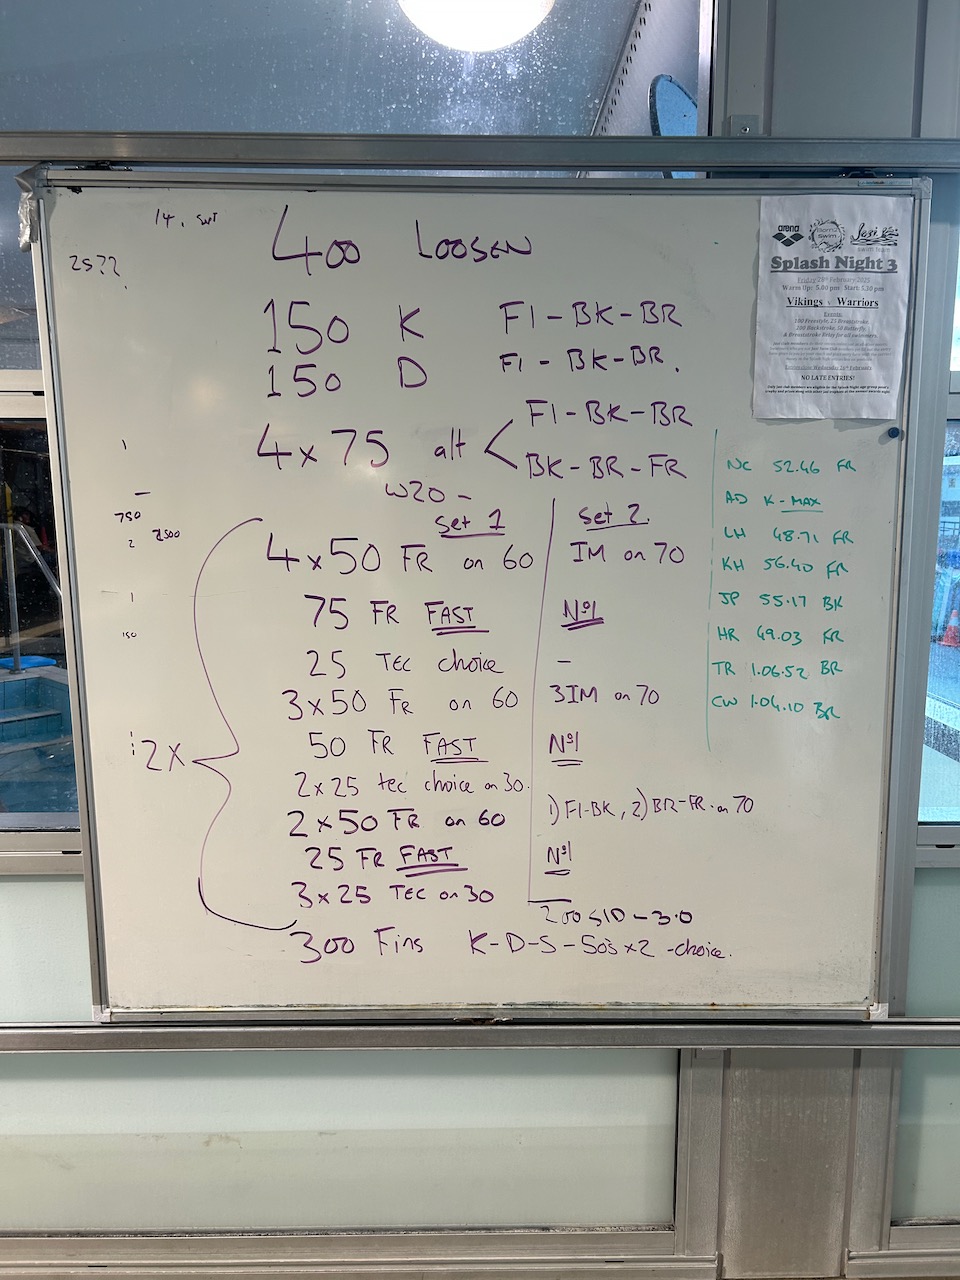 400 LOOSEN
25??
150 K Fl-BK-BR
150 D Fl - BK-BR.
4x75 alt < Fl-BK-BR
BK-BR-FR
W20 -
Set 1 Set 2
2x
4x50 FR on 60 IM on 70
75 FR FAST Nº1
25 TEC choice -
3x50 FR on 60 3IM on 70
50 FR FAST Nº1
2x25 tec choice on 30.
2x50 FR on 60 1) Fl-BK, 2) BR-FR on 70
25 FR FAST Nº1
3x25 TEC on 30
300 Fins K-D-S-50's x2 -choice.
1
750
2
1
150
arena
Splash Night 3
Friday 28th February 2025
Warm Up: 5.00 pm Start: 5.30 pm
Vikings v Warriors
Events:
100 Freestyle, 25 Breaststroke
200 Backstroke, 50 Butterfly
NO LATE ENTRIES!
NC 52.46 FR
AD K-MAX
LH 48.71 FR
KH 56.40 FR
JP 55.17 BK
HR 49.03 FR
TR 1.06.52 BR
CW 1.04.10 BR